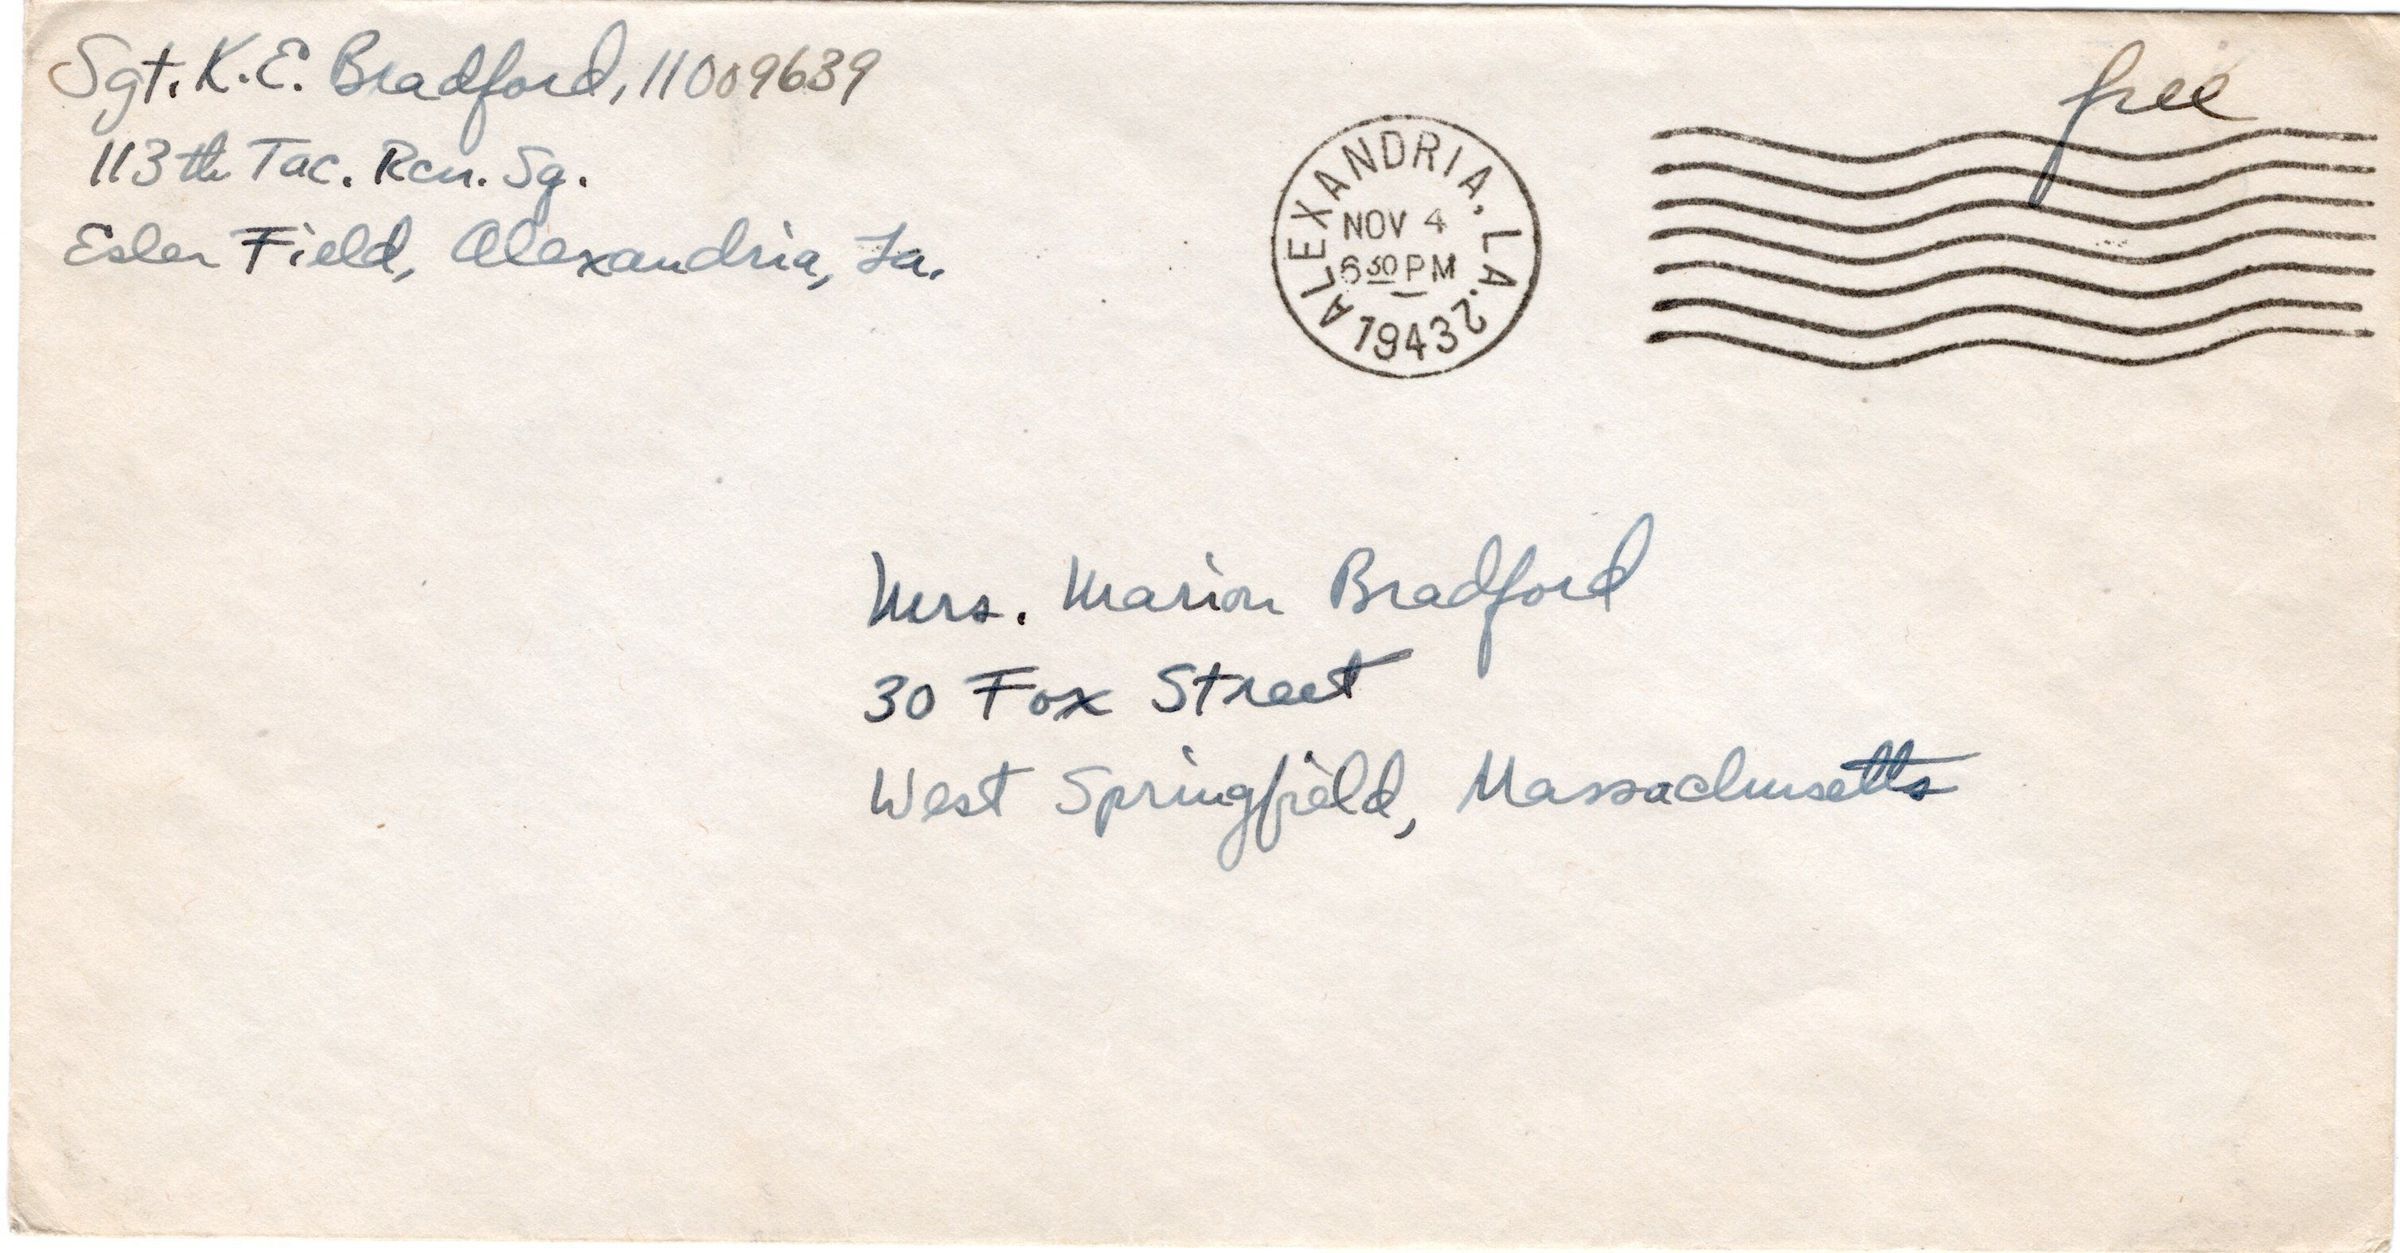 Sgt. K. E. Bradford, 11009639
113th Tac. Rcn. Sq.
Esler Field, Alexandria, La.
free
ALEXANDRIA, LA. 2
NOV 4
6 30 PM
1943
Mrs. Marion Bradford
30 Fox Street
West Springfield, Massachusetts